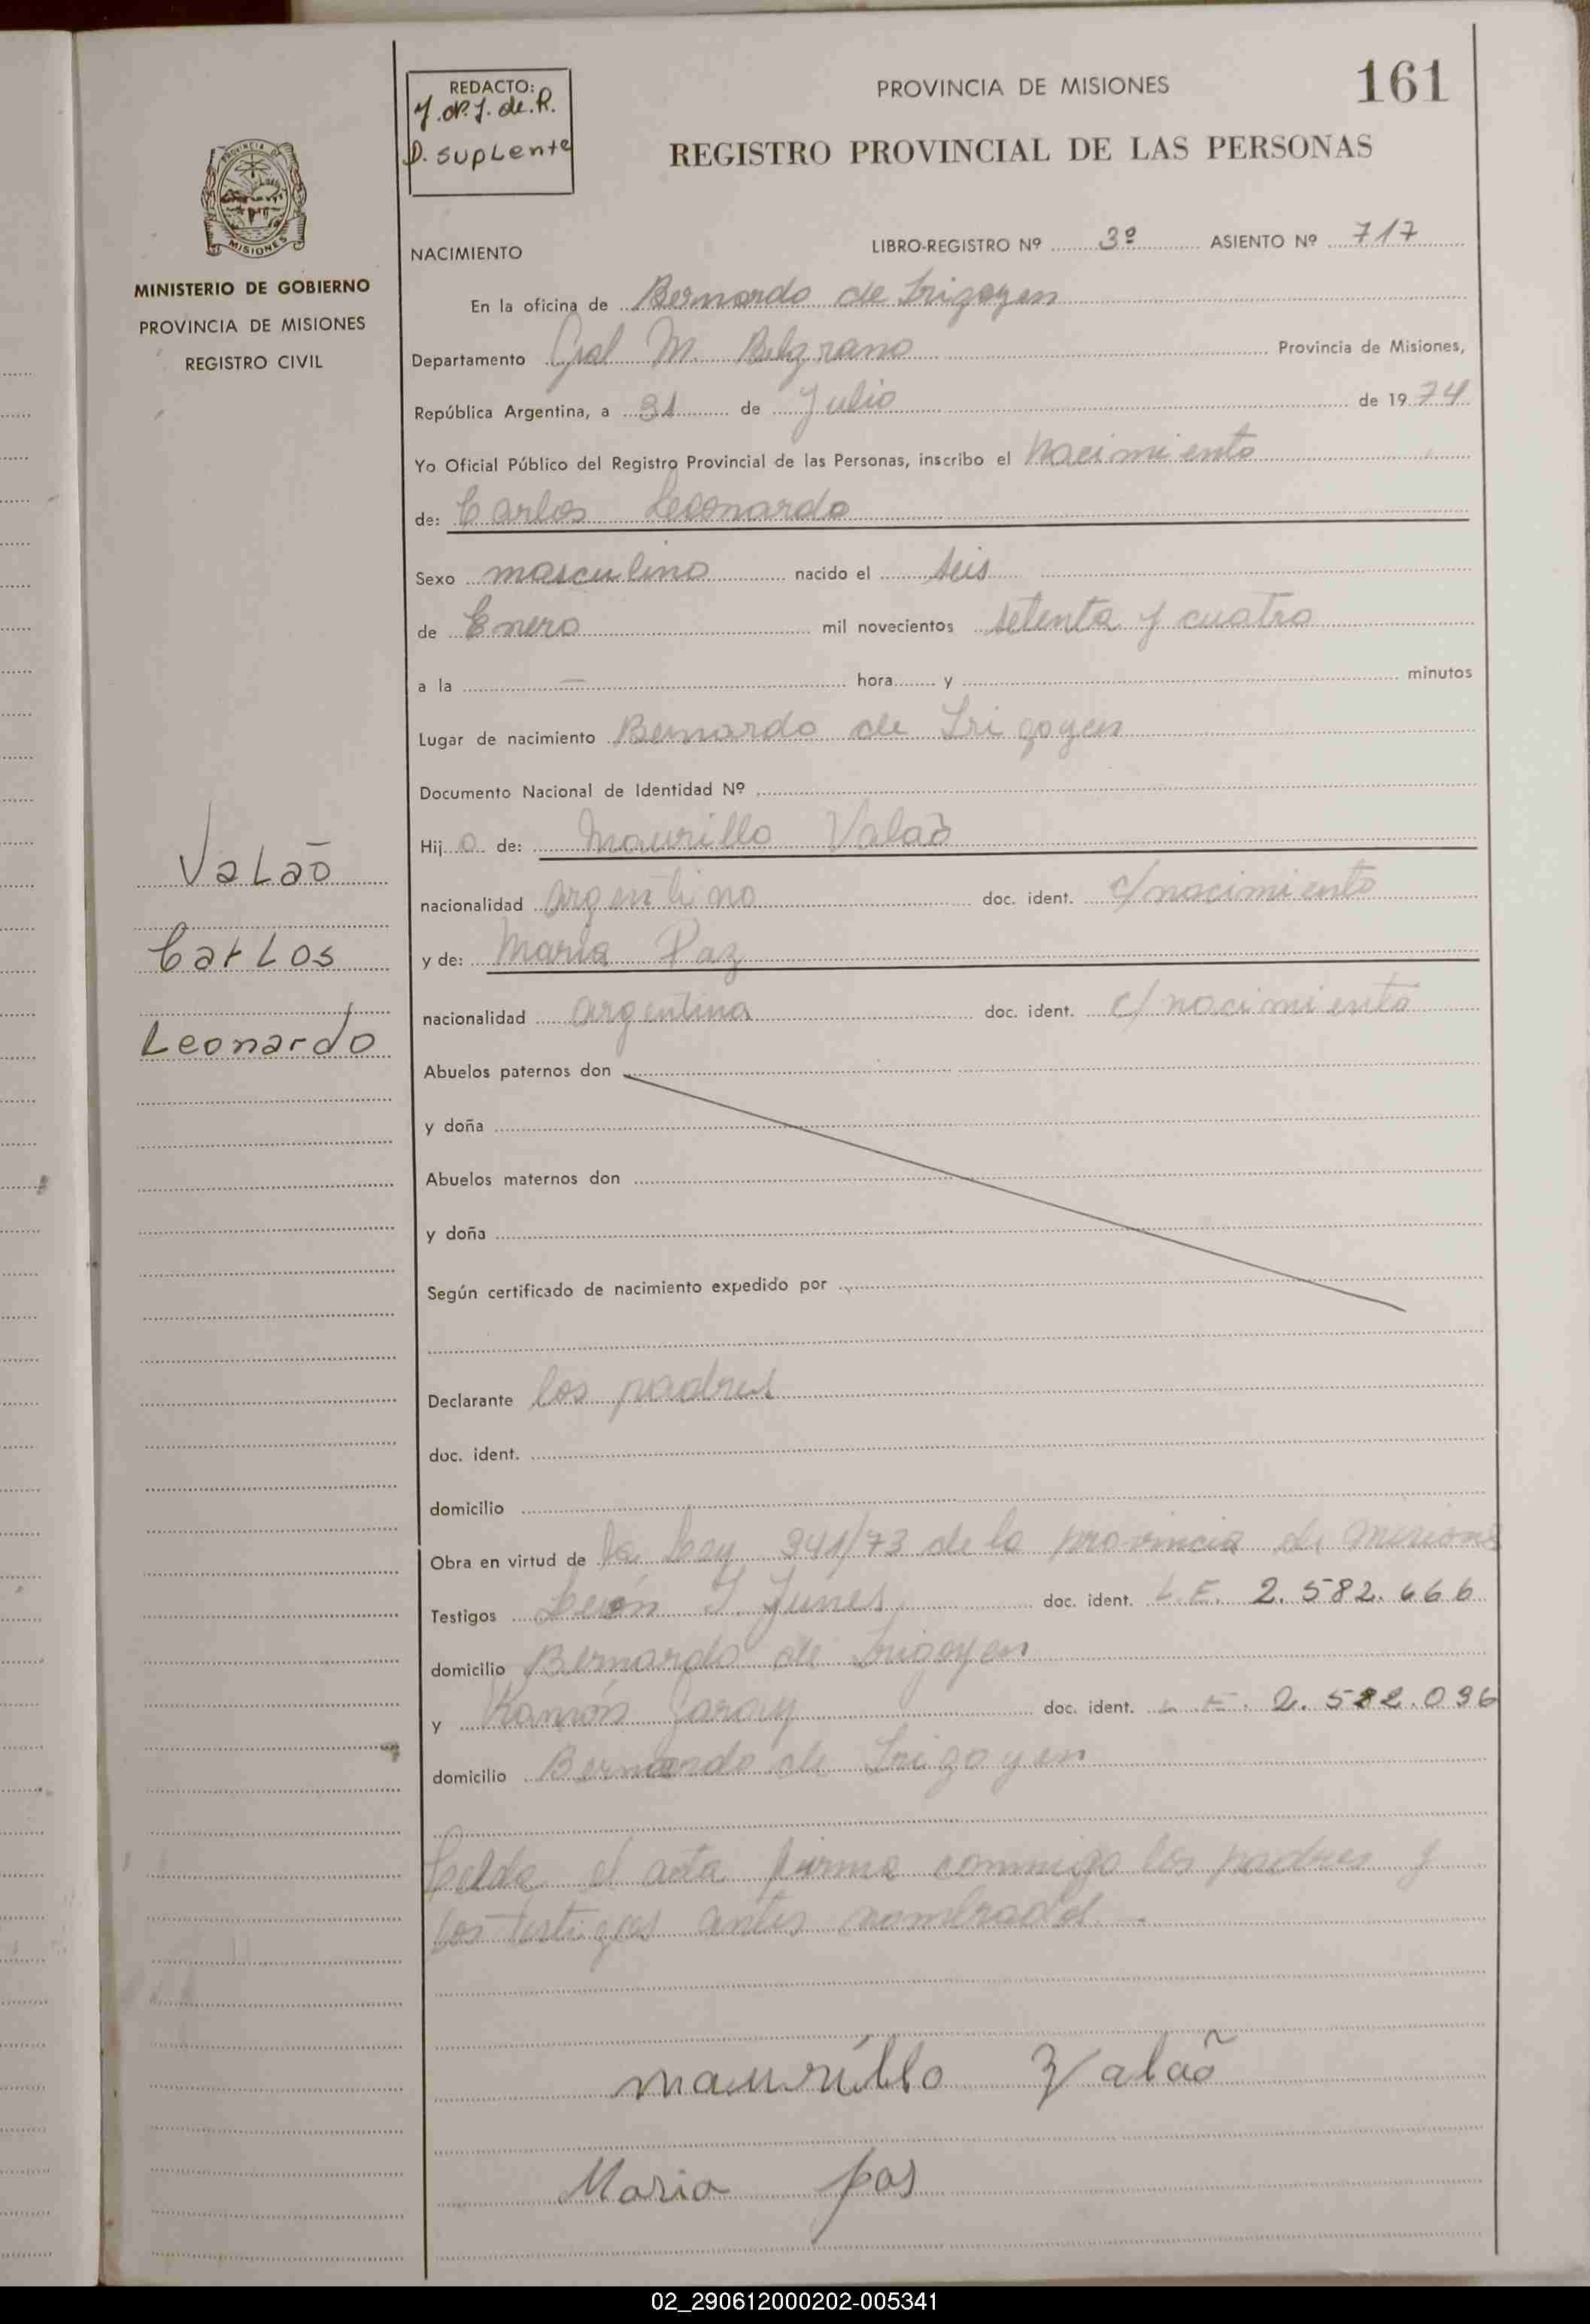 REDACTO:
D. SUPLente
PROVINCIA DE MISIONES
161
REGISTRO PROVINCIAL DE LAS PERSONAS
PROVINCIA DE
MISIONES
MINISTERIO DE GOBIERNO
PROVINCIA DE MISIONES
REGISTRO CIVIL
NACIMIENTO
LIBRO-REGISTRO Nº 3º ASIENTO Nº 717
En la oficina de Bernardo de Irigoyen
Departamento Gral M. Belgrano Provincia de Misiones,
República Argentina, a 31 de Julio de 1974
Yo Oficial Público del Registro Provincial de las Personas, inscribo el nacimiento
de: Carlos Leonardo
Sexo masculino nacido el seis
de Enero mil novecientos setenta y cuatro
a la — hora y minutos
Lugar de nacimiento Bernardo de Irigoyen
Documento Nacional de Identidad Nº
Hijo de: Maurillo Valaõ
nacionalidad argentino doc. ident. c/nacimiento
y de: Maria Paz
nacionalidad argentina doc. ident. c/ nacimiento
Valaõ
Carlos
Leonardo
Abuelos paternos don
y doña
Abuelos maternos don
y doña
Según certificado de nacimiento expedido por
Declarante los padres
doc. ident.
domicilio
Obra en virtud de la Ley 341/73 de la provincia de Misiones
Testigos León J. Junes doc. ident. L.E. 2.582.466
domicilio Bernardo de Irigoyen
y Ramón Garay doc. ident. L.E. 2.582.036
domicilio Bernardo de Irigoyen
Leida el acta firma conmigo los padres y
los testigos antes nombrados.
maurillo Valaõ
Maria pas
02_290612000202-005341